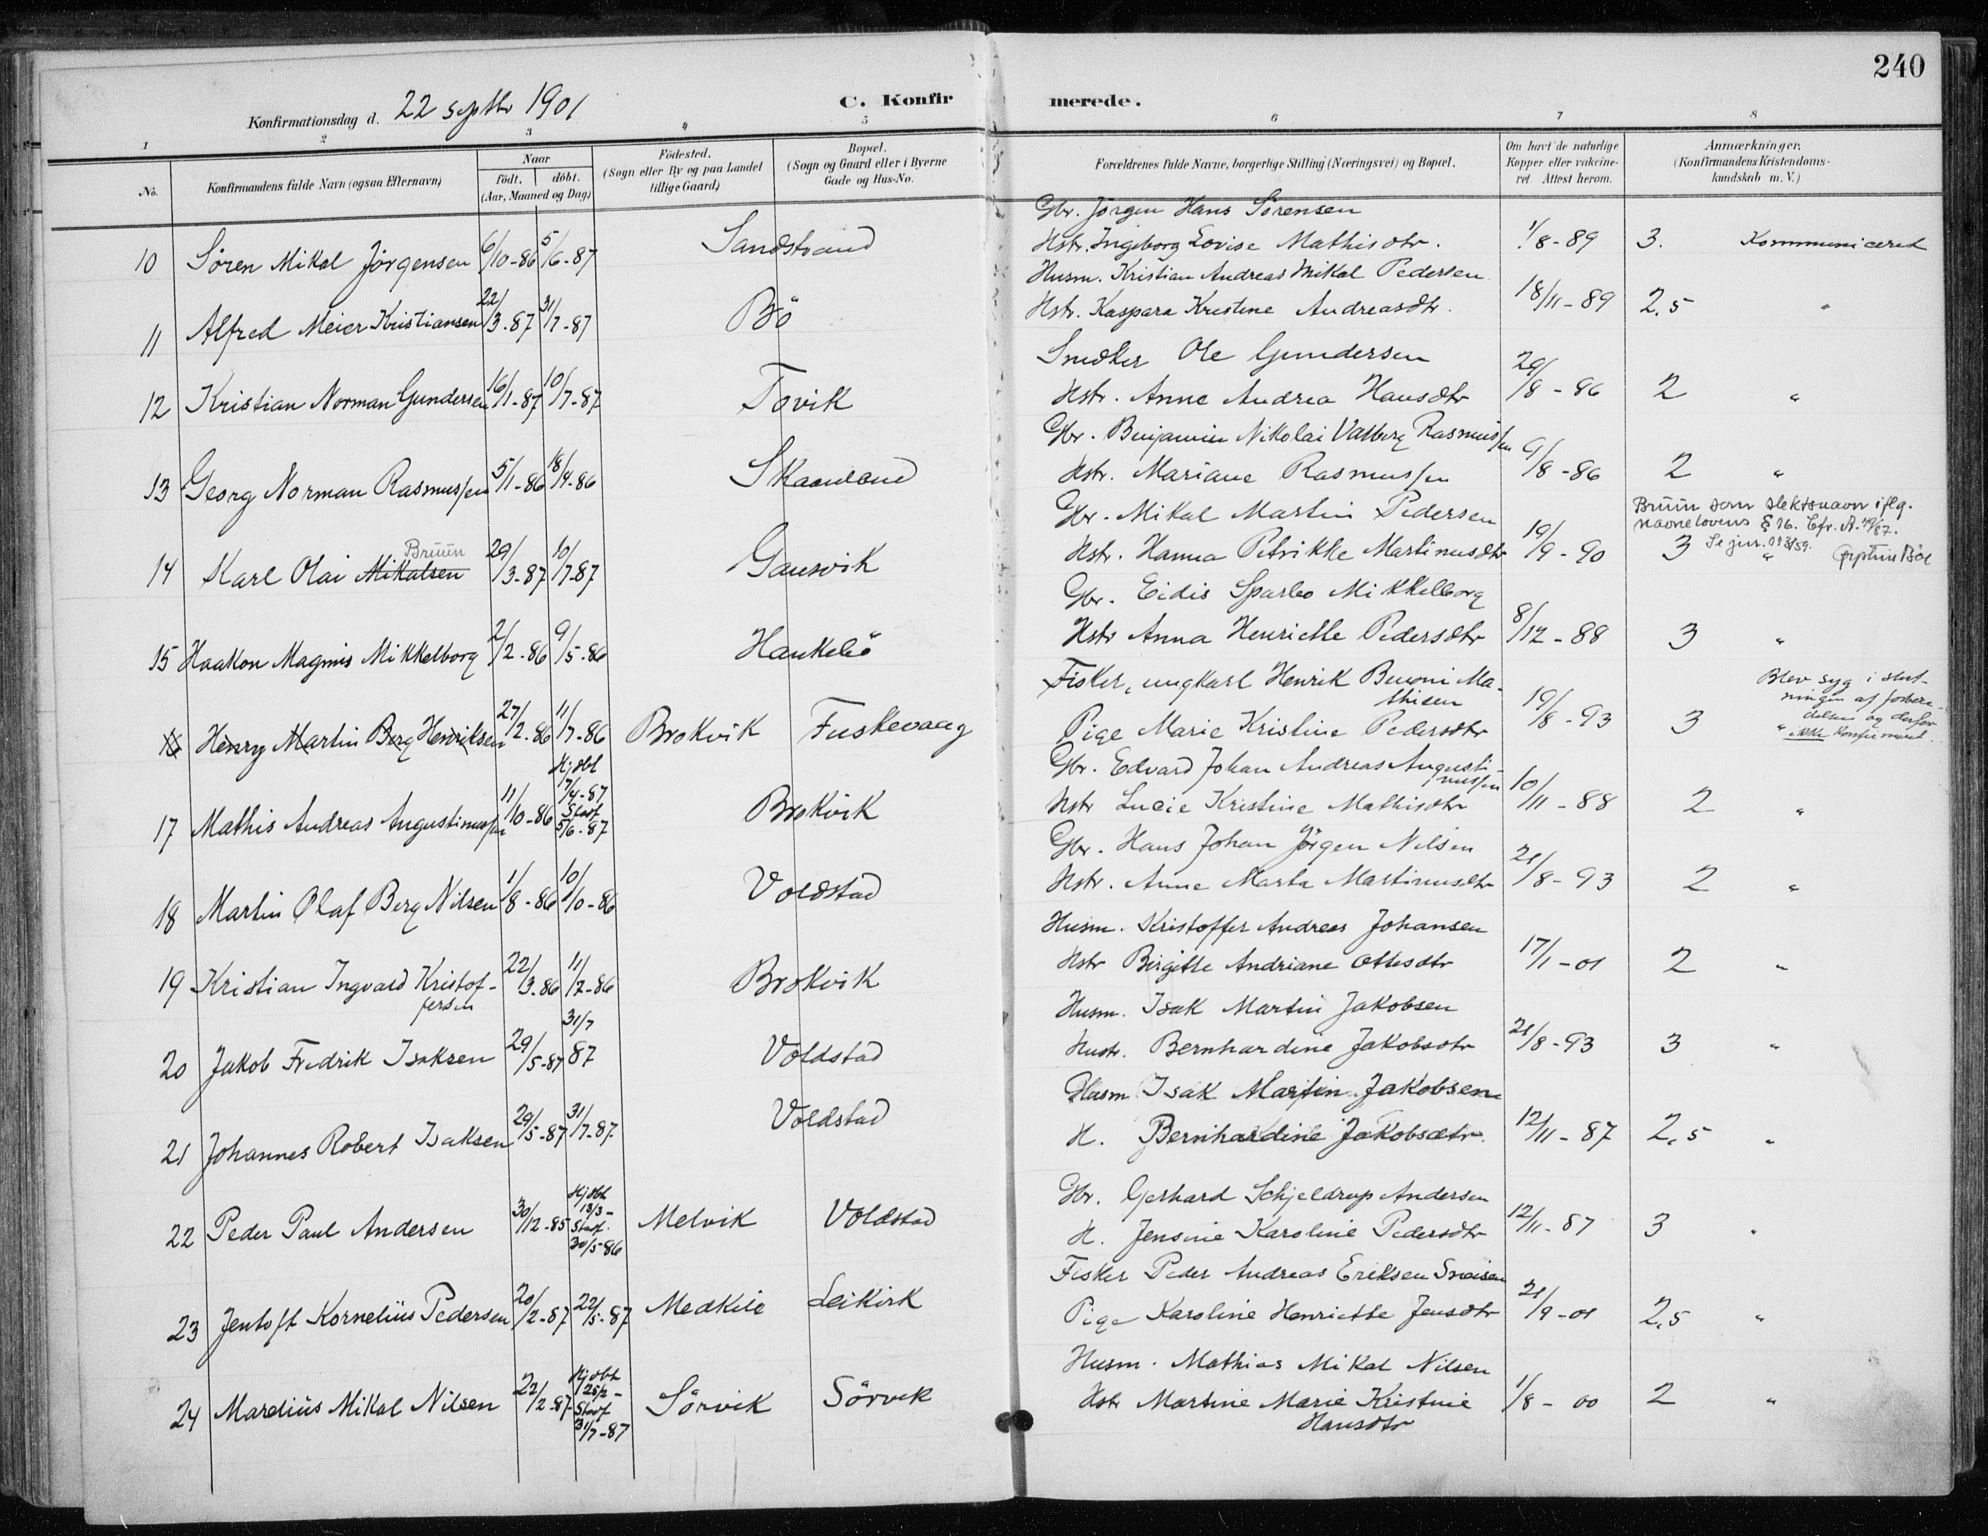 240
Konfirmationsdag d. 22 septbr 1901
C. Konfirmerede.
1 2 3 4 5 6 7 8
No.
Konfirmandens fulde Navn (ogsaa Efternavn)
Naar
født. døbt.
(Aar, Maaned og Dag)
Fødested.
(Sogn eller By og paa Landet
tillige Gaard)
Bopæl.
(Sogn og Gaard eller i Byerne
Gade og Hus-No.
Forældrenes fulde Navne, borgerlige Stilling (Næringsvei) og Bopæl.
Om havt de naturlige
Kopper eller vaccine-
ret. Attest herom.
Anmærkninger.
(Konfirmandens Kristendoms-
kundskab m. V.)
Gbr. Jørgen Hans Sørensen
10 Søren Mikal Jørgensen 6/10-86 5/6-87 Sandstrand Hstr. Ingeborg Lovise Mathisdtr. 1/8-89 3. Kommuniceret
Husm. Kristian Andreas Mikal Pedersen
11 Alfred Meier Kristiansen 22/3-87 31/7-87 Bö Hstr. Kaspara Kristine Andreasdtr. 18/11-89 2,5 "
Snedker Ole Gundersen
12 Kristian Norman Gundersen 16/1-87 10/7-87 Tovik Hstr. Anne Andrea Hansdtr 29/8-86 2 "
Gbr. Benjamin Nikolai Valberg Rasmussen
13 Georg Norman Rasmussen 5/1-86 18/4-86 Skaanland Hstr. Mariane Rasmussen 9/8-86 2 "
Bruun som slektsnavn iflg.
navnelovens § 16. Cfr. A. 49/87.
Gbr. Mikal Martin Pedersen
Bruun
14 Karl Olai Mikalsen 29/3-87 10/7-87 Gausvik Hstr. Hanna Petrikke Martinusdtr 19/9-90 3 Se jnr. 013/59. "
Gbr. Eidis Sparbo Mikkelborg
15 Haakon Magnus Mikkelborg 2/2-86 9/5-86 Haukebö Hstr Anna Henriette Pedersdtr 8/12-88 3 "
Fisker, ungkarl Henrik Benoni Ma-
thisen
Blev syg i slut-
ningen af forbere-
delsen og derfor
ikke konfirmeret.
16 Henry Martin Berg Henriksen 27/2-86 11/7-86 Brokvik Fuskevaag Pige Marie Kristine Pedersdtr 19/8-93 3 "
Gbr. Edvard Johan Andreas Augusti-
nussen
17 Mathis Andreas Augustinussen 11/10-86 Hjdbt 17/4-87 Stadf 5/6-87 Brokvik Hstr Lucie Kristine Mathisdtr 10/11-88 2 "
Gbr. Hans Johan Jörgen Nilsen
18 Martin Olaf Berg Nilsen 1/8-86 10/10-86 Voldstad Hstr. Anne Marta Martinusdtr 21/8-93 2 "
Husm. Kristoffer Andreas Johansen
19 Kristian Ingvard Kristof-
fersen 22/3-86 11/7-86 Brokvik Hstr Birgitte Andriane Ottesdtr 17/1-01 2 "
Husm. Isak Martin Jakobsen
20 Jakob Fredrik Isaksen 29/5-87 31/7 87 Voldstad Hustr. Bernhardine Jakobsdtr 21/8-93 3 "
Husm Isak Martin Jakobsen
21 Johannes Robert Isaksen 29/5-87 31/7-87 Voldstad H. Bernhardine Jakobsdtr. 12/11-87 2,5 "
Gbr. Gerhard Schjeldrup Andersen
22 Peder Paul Andersen 30/12-85 Hjdbt 13/3- Stadf. 30/5-86 Melvik Voldstad H. Jensine Karoline Pedersdtr 12/11-87 3 "
Fisker Peder Andreas Eriksen Sneisen
23 Jentoft Kornelius Pedersen 20/2-87 22/5-87 Medkile Leikvik Pige Karoline Henriette Jensdtr 21/9-01 2,5 "
Husm. Mathias Mikal Nilsen
24 Mardius Mikal Nilsen 22/2-87 Hjdbt 25/2- Stadf 31/7-87 Sörvik Sörvik Hstr Martine Marie Kristine
Hansdtr 1/8-00 2 "